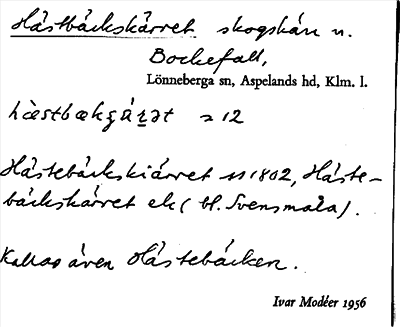 Hästbäckskärret skogskärr n.
Bockefall,
Lönneberga sn, Aspelands hd, Klm. l.
hæ̀stbækʂáṟət ɔ 12
Hästebäckskiärret 1802, Häste-
bäckskärret ek (bl. Svensmåla).
Kallas även Hästebäcken.
Ivar Modéer 1956